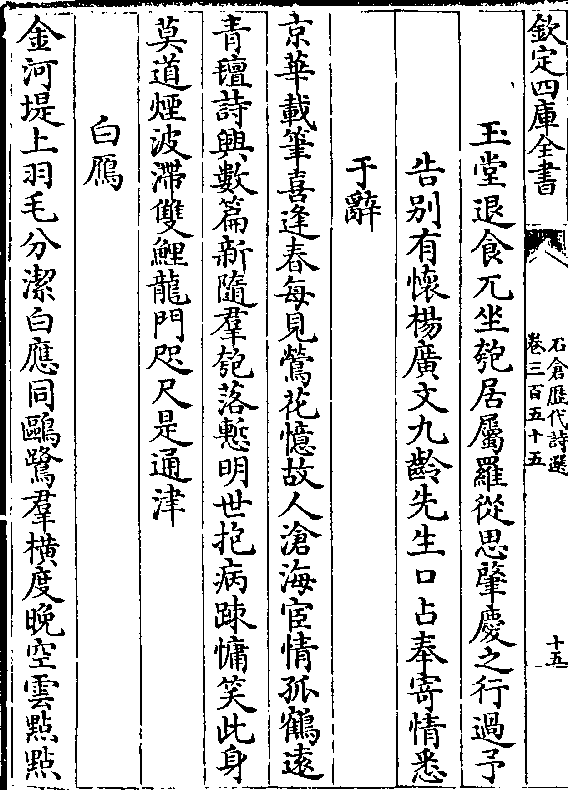 欽定四庫全書
石倉歷代詩選
卷三百五十五
十五
玉堂退食兀坐匏居屬羅從思肇慶之行過予
告别有懷楊廣文九齡先生口占奉寄情悉
于辭
京華載筆喜逢春每見鶯花憶故人滄海宦情孤鶴逺
青氊詩興數篇新隨羣匏落慙明世抱病踈慵笑此身
莫道煙波滯雙鯉龍門咫尺是通津
白鴈
金河堤上羽毛分潔白應同鷗鷺羣横度晚空雲點點